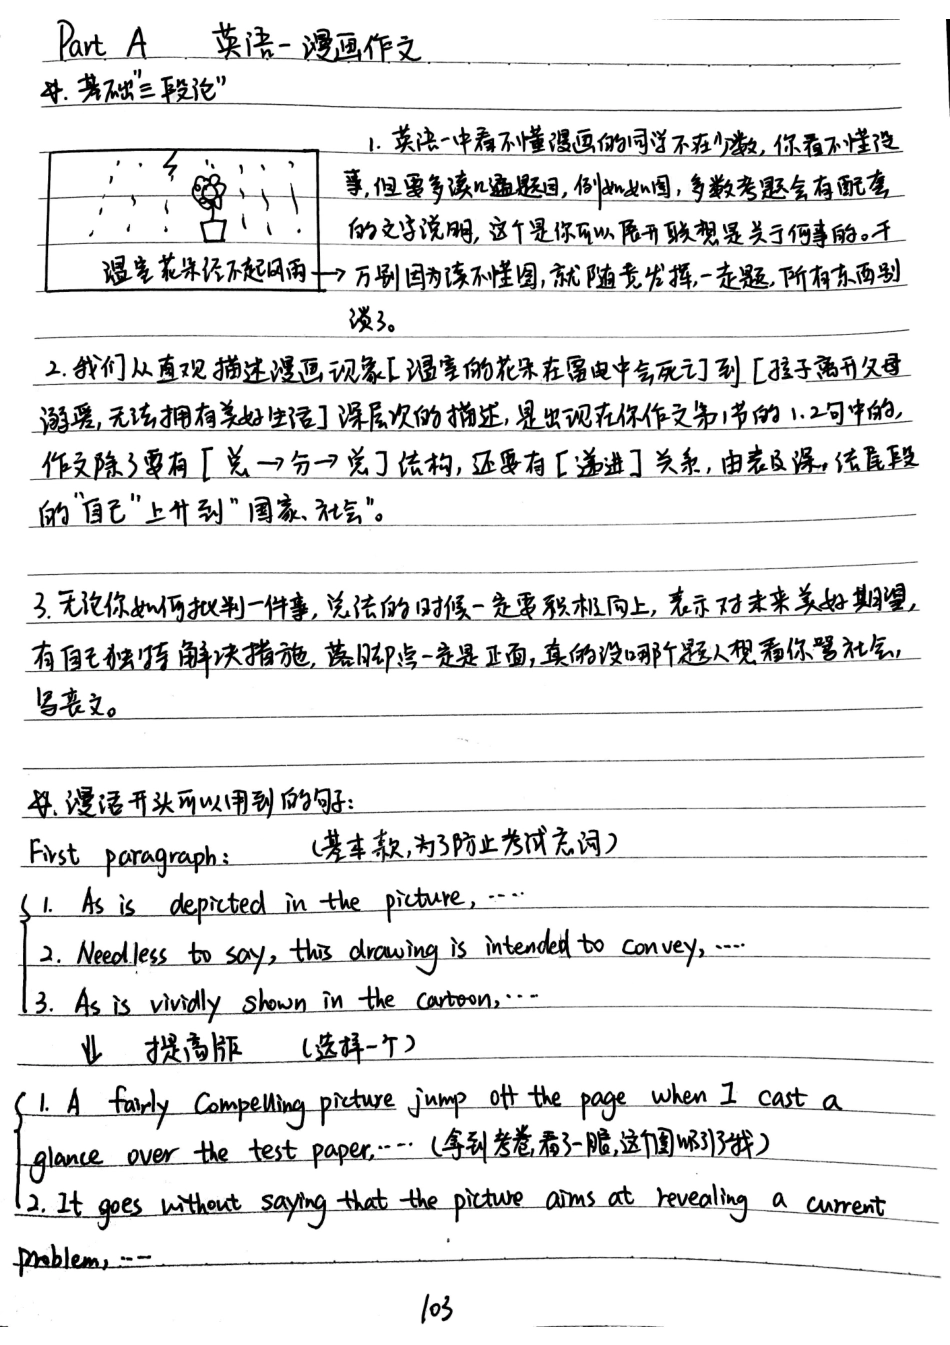 Part A 英语一漫画作文
廿. 基础"三段论"
1. 英语一中看不懂漫画的同学不在少数, 你看不懂没
事, 但要多读几遍题目, 例如如图, 多数考题会有配套
的文字说明, 这个是你可以展开联想是关于何事的。千
温室花朵经不起风雨 → 万别因为读不懂图, 就随意发挥, 一走题, 所有东西别
谈了。
2. 我们从直观描述漫画现象[温室的花朵在雷电中会死亡]到[孩子离开父母
溺爱, 无法拥有美好生活]深层次的描述, 是出现在你作文第1节的1.2句中的,
作文除了要有[总→分→总]结构, 还要有[递进]关系, 由表及深。结尾段
的"自己"上升到"国家、社会"。
3. 无论你如何批判一件事, 总结的时候一定要积极向上, 表示对未来美好期望,
有自己独特解决措施, 落脚点一定是正面, 真的没哪个题人想看你骂社会,
写丧文。
廿. 漫话开头可以用到的句子:
First paragraph: (基本款, 为了防止考试忘词)
1. As is depicted in the picture, ……
2. Needless to say, this drawing is intended to convey, ……
3. As is vividly shown in the cartoon, ……
⇓ 提高版 (选择一个)
1. A fairly compelling picture jump off the page when I cast a
glance over the test paper, …… (拿到考卷, 看了一眼, 这个图吸引了我)
2. It goes without saying that the picture aims at revealing a current
problem, ……
103